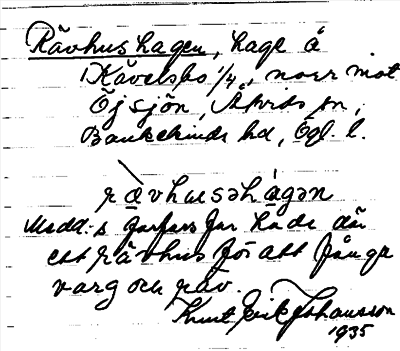 Rävhushagen, hage å
Kävelsbo 1/4, norr mot
Öjsjön, Åtvids sn,
Bankekinds hd, Ögl. l.
rævhusəhagən
Medd:s farfars far hade där
ett rävhus för att fånga
varg och räv.
Knut Erik Johansson
1935